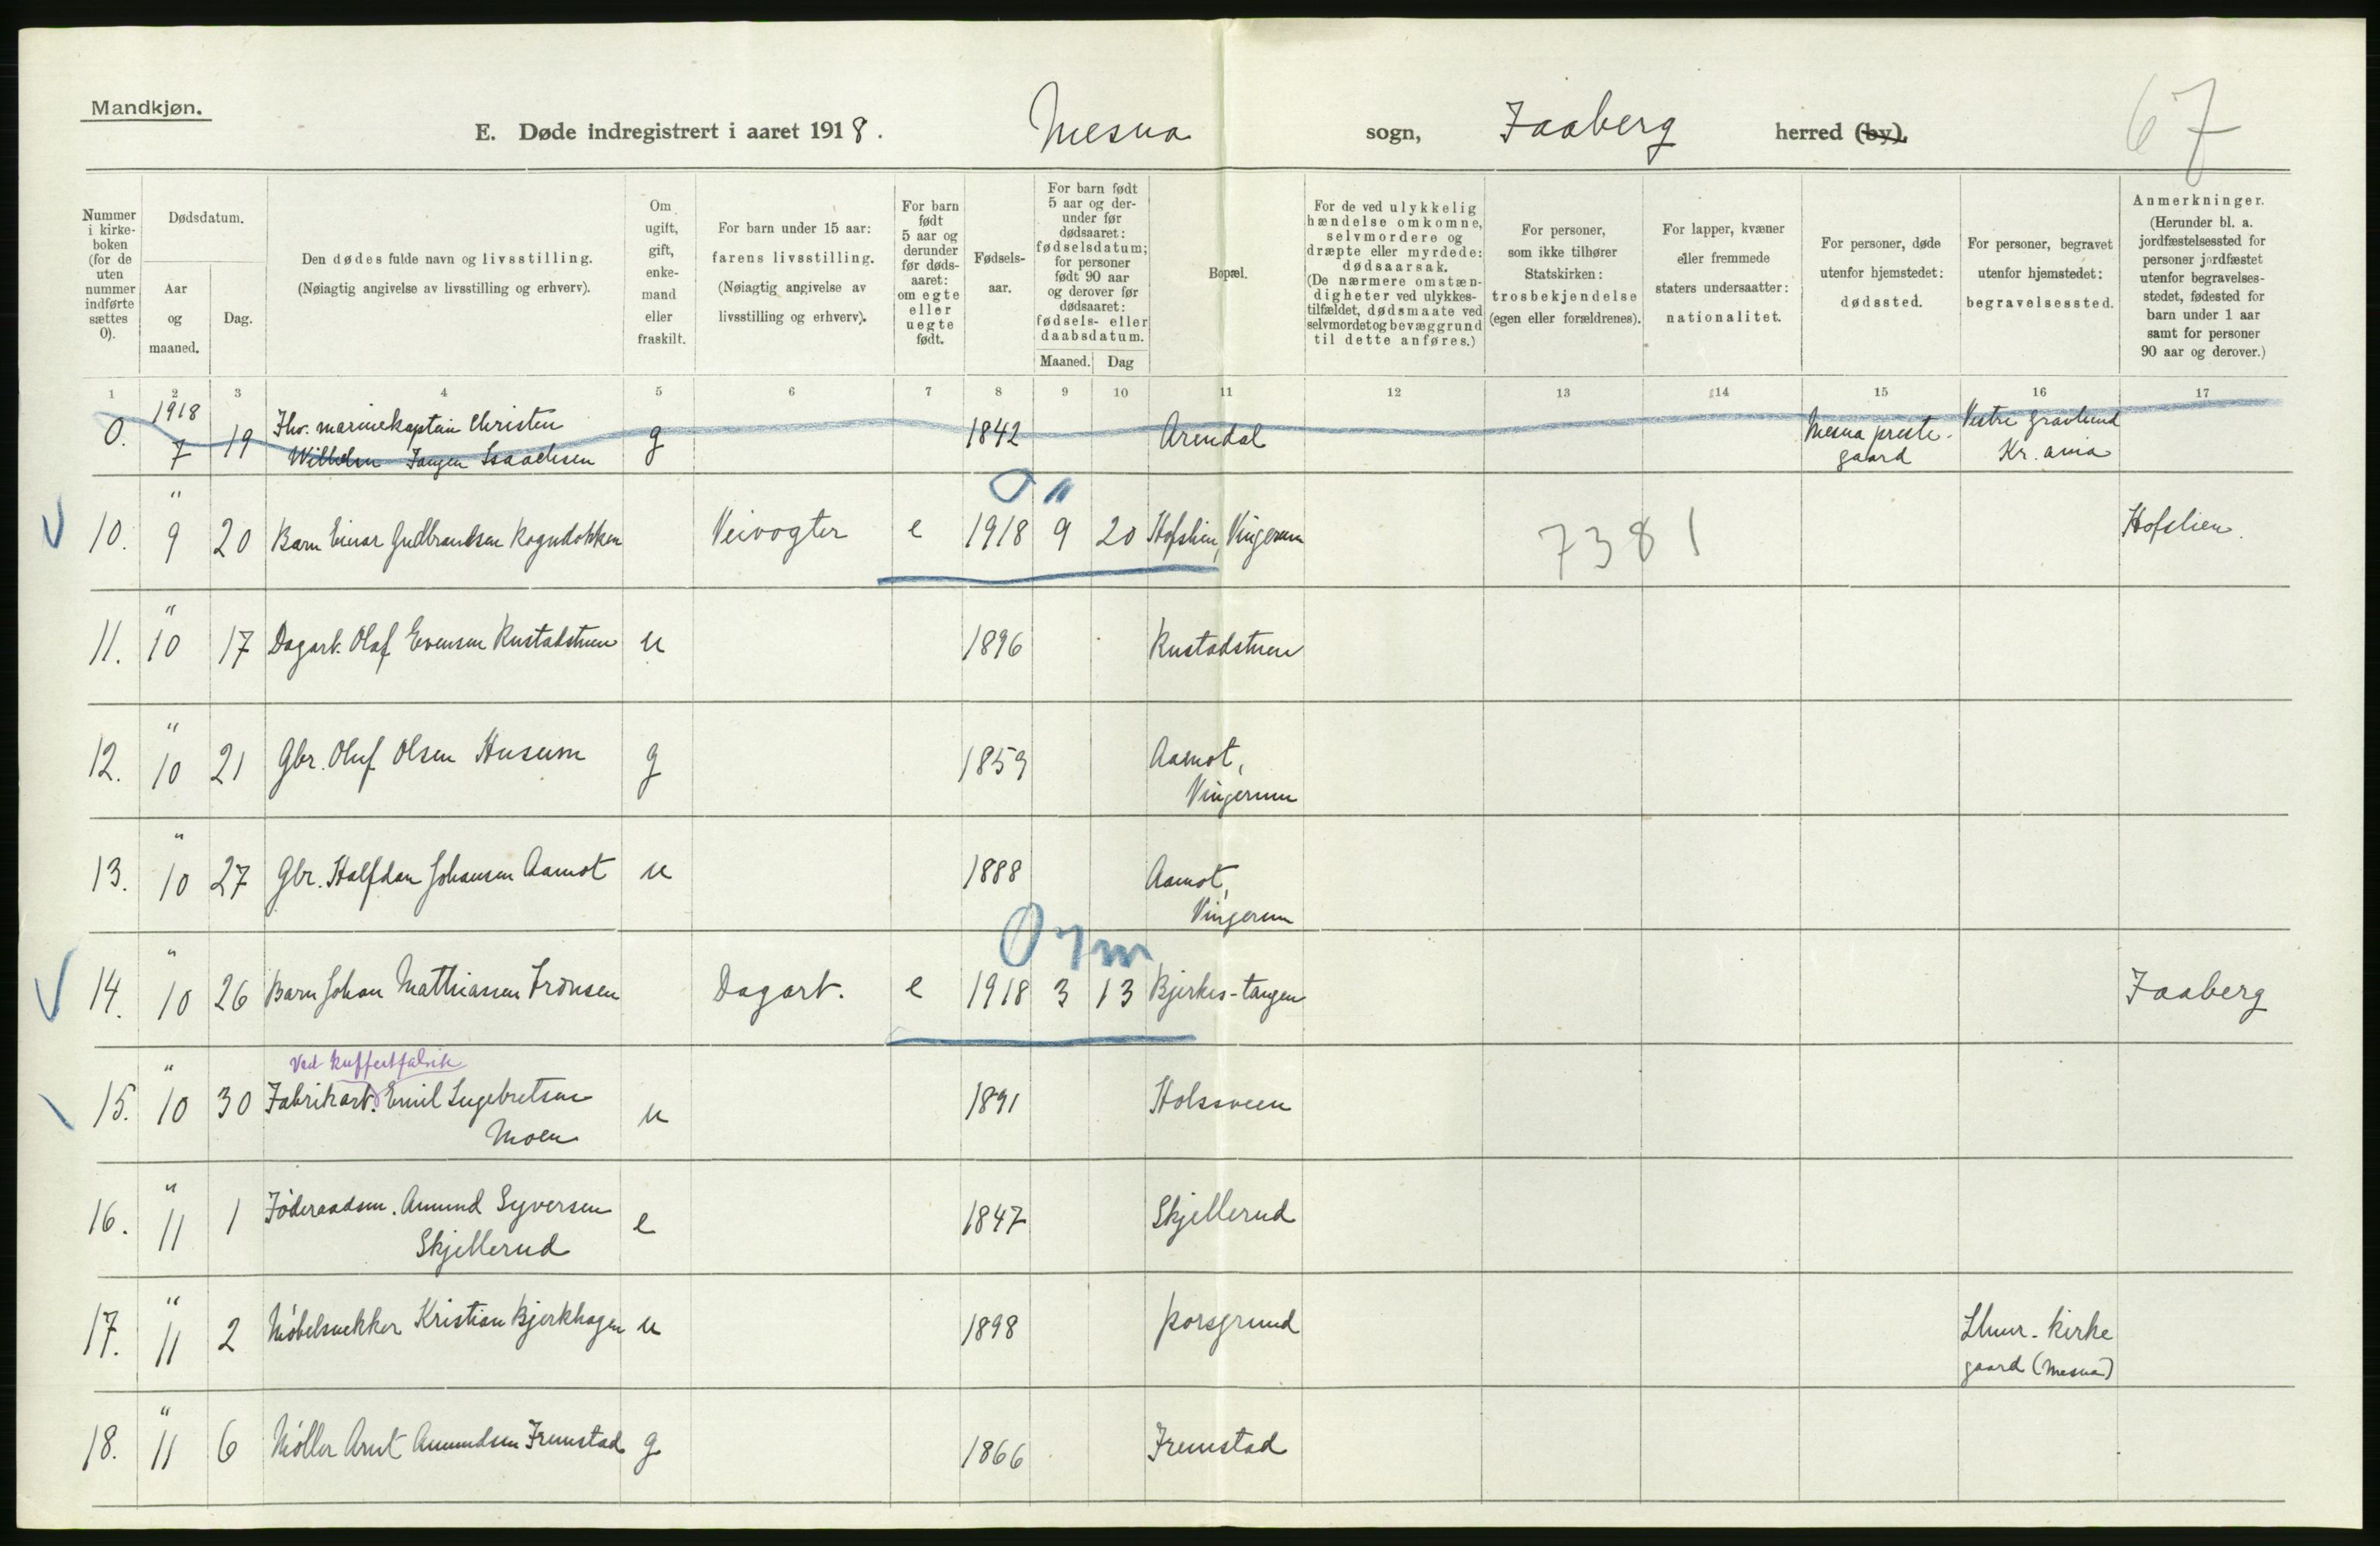 Mandkjøn.
E. Døde indregistrert i aaret 1918. Mesna sogn, Faaberg herred (by).
67
Nummer i kirke-boken (for de uten nummer indførte sættes 0).
Dødsdatum.
Aar og maaned.
Dag.
Den dødes fulde navn og livsstilling.
(Nøiagtig angivelse av livsstilling og erhverv).
Om ugift, gift, enke-mand eller fraskilt.
For barn under 15 aar: farens livsstilling.
(Nøiagtig angivelse av livsstilling og erhverv).
For barn født 5 aar og derunder før døds-aaret: om egte eller uegte født.
Fødsels-aar.
For barn født 5 aar og der-under før dødsaaret: fødselsdatum; for personer født 90 aar og derover før dødsaaret: fødsels- eller daabsdatum.
Maaned. Dag
Bopæl.
For de ved ulykkelig hændelse omkomne, selvmordere og dræpte eller myrdede: dødsaarsak.
(De nærmere omstæn-digheter ved ulykkes-tilfældet, dødsmaate ved selvmordet og bevæggrund til dette anføres.)
For personer, som ikke tilhører Statskirken: trosbekjendelse (egen eller forældrenes).
For lapper, kvæner eller fremmede staters undersaatter: nationalitet.
For personer, døde utenfor hjemstedet: dødssted.
For personer, begravet utenfor hjemstedet: begravelsessted.
Anmerkninger.
(Herunder bl. a. jordfæstelsessted for personer jordfæstet utenfor begravelses-stedet, fødested for barn under 1 aar samt for personer 90 aar og derover.)
1 2 3 4 5 6 7 8 9 10 11 12 13 14 15 16 17
0. 1918 7 19 Fhv. marinekaptein Christen g 1842 Arendal Mesna preste- Vestre gravlund
Wilhelm Isaachsen gaard Kr.ania
0 "
10. " 9 20 Barn Einar Gudbrandsen Rognstokken Veivogter e 1918 9 20 Hofslien, Vingerum 7381 Hofslien.
11. " 10 17 Dagarb. Olaf Evensen Rustadstuen u 1896 Rustadstuen
12. " 10 21 Gbr. Oluf Olsen Husum g 1859 Aamot,
Vingerum
13. " 10 27 Gbr. Halfdan Johansen Aamot u 1888 Aamot,
Vingerum
0 7 m
14. " 10 26 Barn Johan Mathiassen Trønsen Dagarb. e 1918 3 13 Bjerkes-tangen Faaberg
Ved kuffertfabrik
15. " 10 30 Fabrikarb. Emil Ingebretsen u 1891 Holsveen
Moen
16. " 11 1 Føderaadsm. Amund Syversen e 1847 Skjellerud
Skjellerud
17. " 11 2 Møbelsnekker Kristian Bjerkhagen u 1898 Porsgrund Lhmr. kirke
gaard (Mesna)
18. " 11 6 Møller Arnt Amundsen Fremstad g 1866 Fremstad